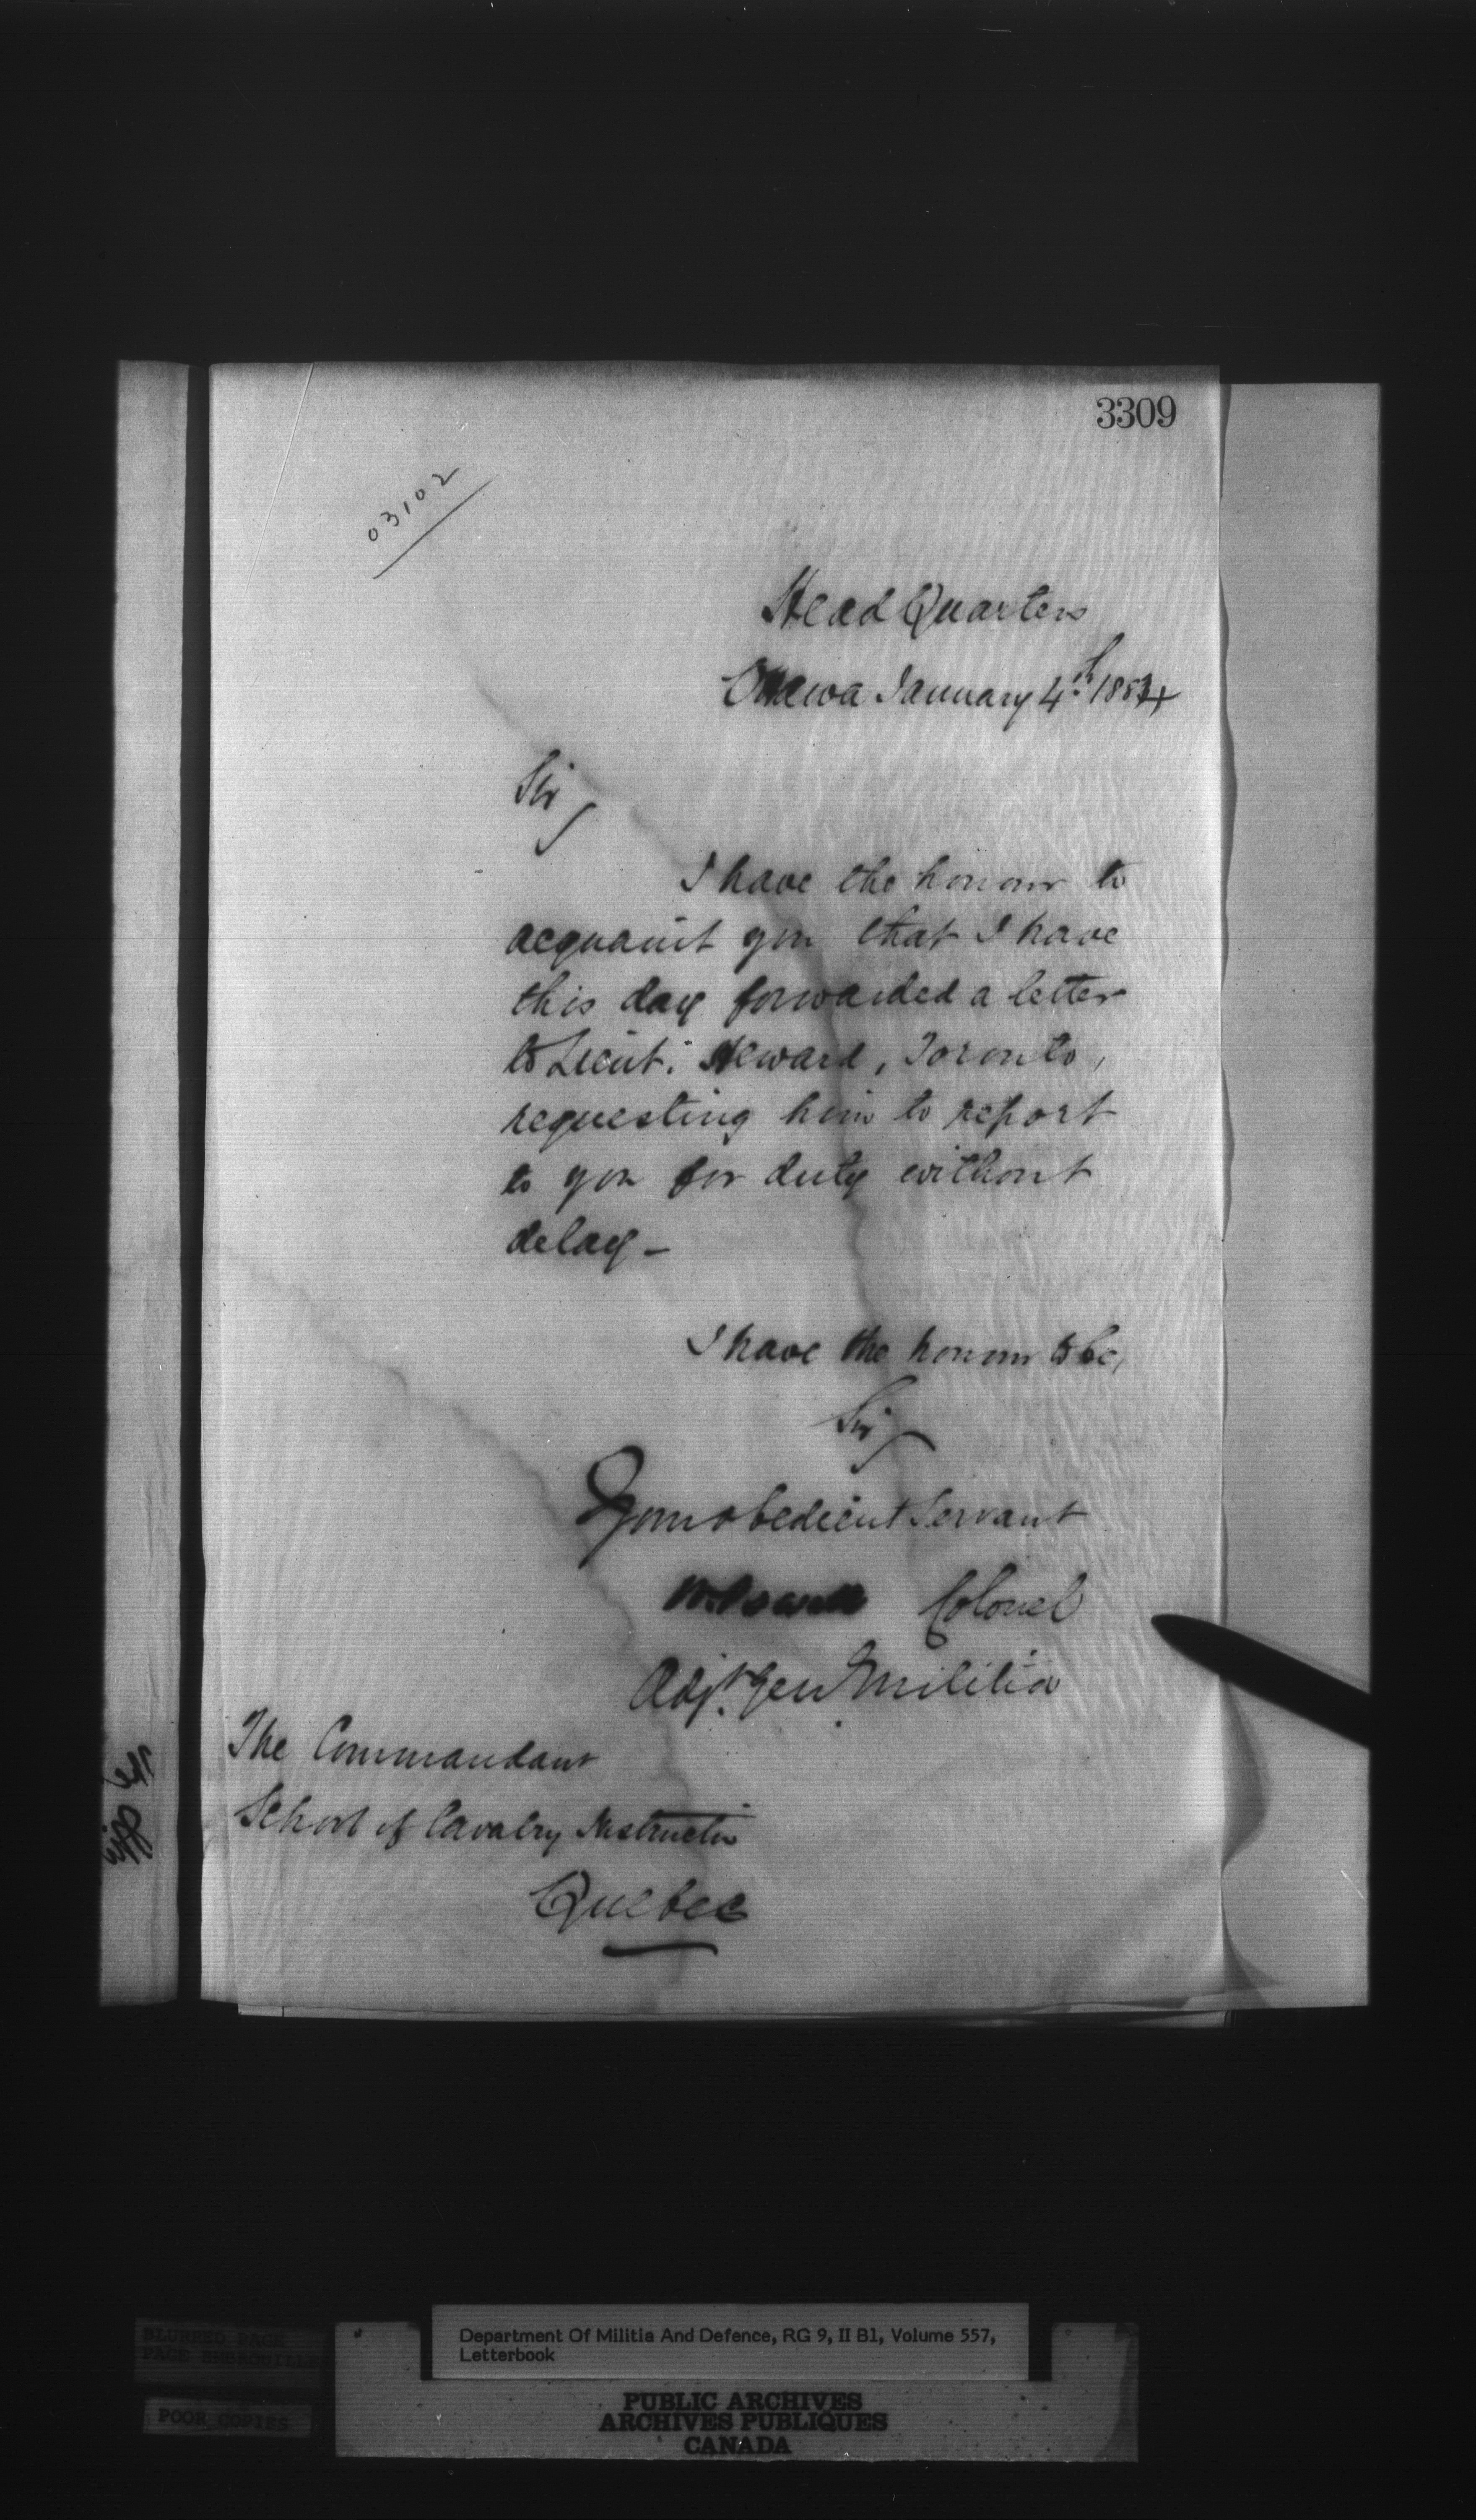 3309
03102
Head Quarters
Ottawa January 4th 1884
Sir,
I have the honour to
acquaint you that I have
this day forwarded a letter
to Lieut. Heward, Toronto,
requesting him to report
to you for duty without
delay –
I have the honour to be,
Sir,
Your obedient Servant
W. Powell Colonel
Adjt. Gen Militia
The Commandant
School of Cavalry Instruction
Quebec
Department Of Militia And Defence, RG 9, II B1, Volume 557,
Letterbook
BLURRED PAGE
PAGE EMBROUILLE
POOR COPIES
PUBLIC ARCHIVES
ARCHIVES PUBLIQUES
CANADA